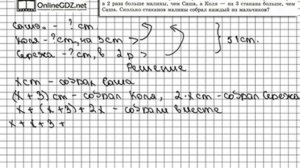 OnlineGDZ.net
в 2 раза больше малины, чем Саша, а Коля — на 3 стакана больше, чем
Саша. Сколько стаканов малины собрал каждый из мальчиков?
Саша - ? ст.
Коля - ? ст, на 3 ст >
51 ст.
Сережа - ? ст, в 2 р >
Решение
x ст - собрал Саша
(x + 3) ст - собрал Коля, 2·x ст - собрал Сережа
x + (x + 3) + 2x - собрали вместе
x + x + 3 +